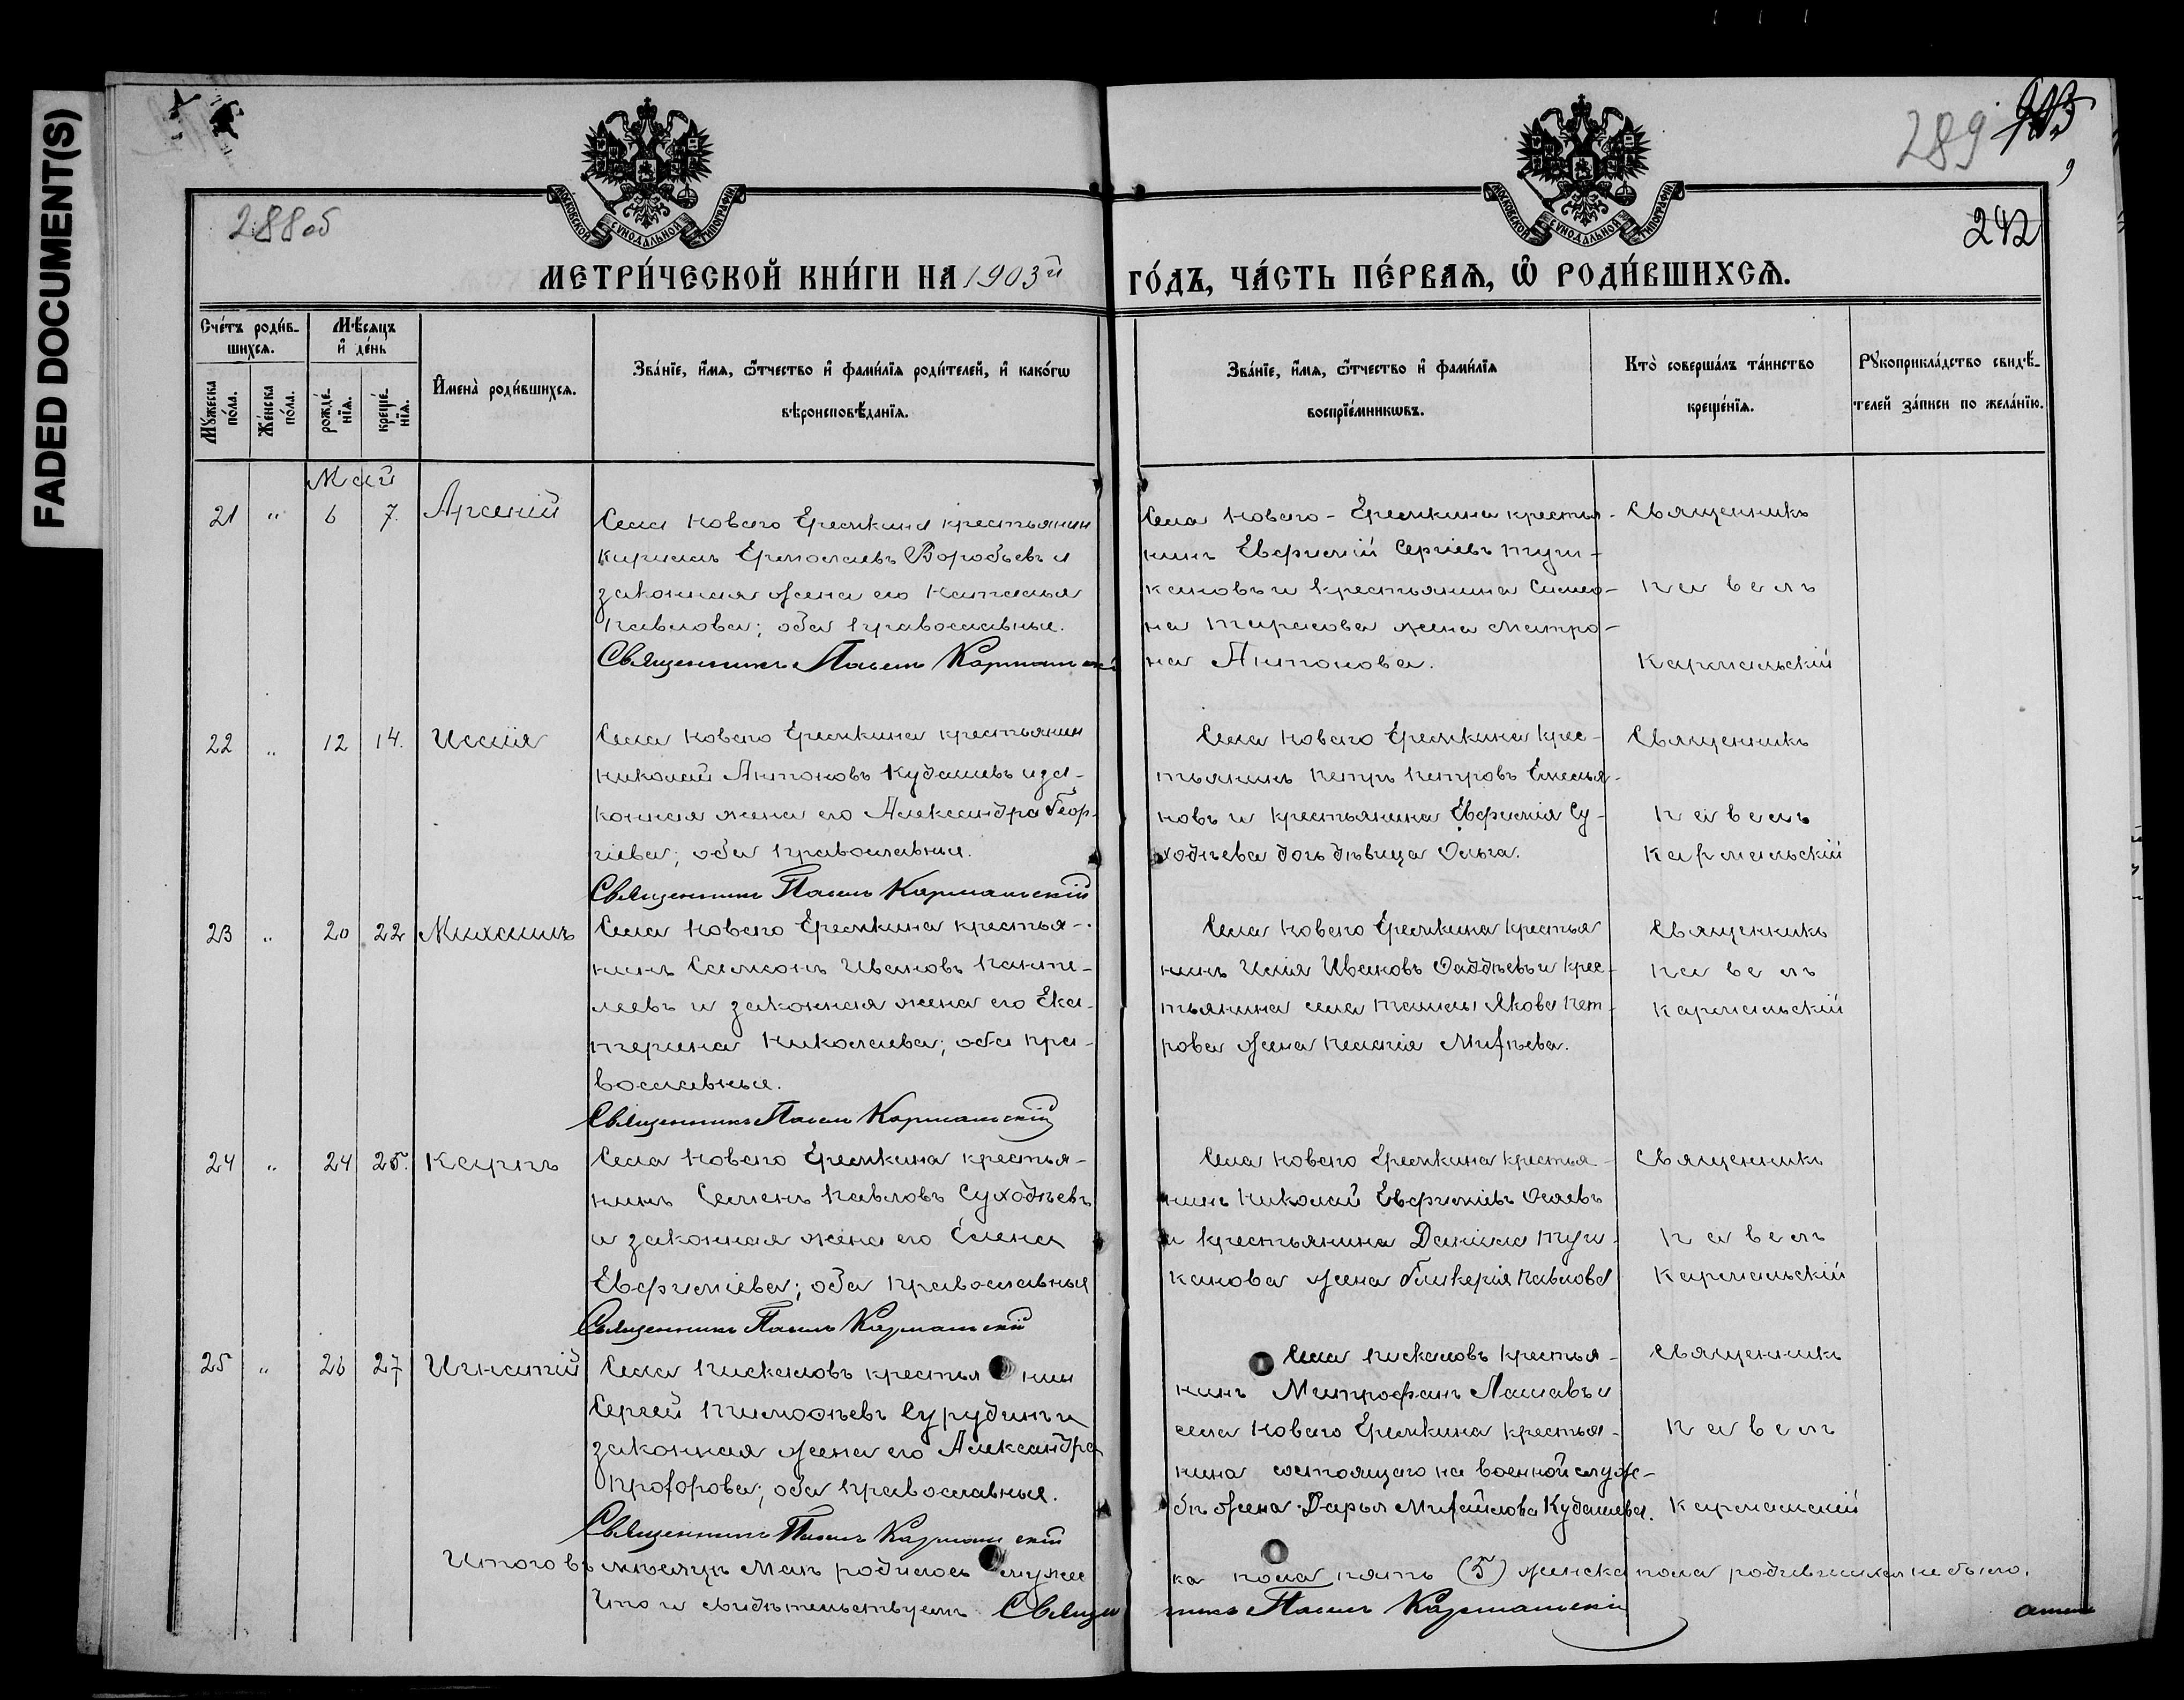 FADED DOCUMENT(S)
288 об
289
242
МОСКОВСКОЙ СѴНОДАЛЬНОЙ ТИПОГРАФІИ
МОСКОВСКОЙ СѴНОДАЛЬНОЙ ТИПОГРАФІИ
МЕТРИ́ЧЕСКОЙ КНИ́ГИ НА 1903й
ГО́ДЪ, ЧА́СТЬ ПЕ́РВАѦ, Ѡ҆ РОДИ́ВШИХСѦ.
Сче́тъ роди́в-
шихсѧ.
Мꙋжеска по́ла.
Же́нска по́ла.
Мѣ́сѧцъ
и҆ де́нь
рожде́-
нїѧ.
креще́-
нїѧ.
И҆мена̀ роди́вшихсѧ.
Зва́нїе, и҆́мѧ, ѻ҆́тчество и҆ фами́лїѧ роди́телей, и҆ како́гѡ
вѣроисповѣ́данїѧ.
Зва́нїе, и҆́мѧ, ѻ҆́тчество и҆ фами́лїѧ
воспрїе́мникѡвъ.
Кто̀ соверша́лъ та́инство
креще́нїѧ.
Рꙋкоприкла́дство свидѣ́-
телей за́писи по жела́нїю.
Май
21 " 6 7. Арсеній
Села Новаго Еремкина крестьянин
Кирилъ Ермолаевъ Воробьевъ и
законная жена его Наталья
Павлова; оба православные.
Священникъ Павелъ Кармальскій
Села Новаго-Еремкина крестья-
нинъ Евфимій Сергіевъ Туги-
кановъ и крестьянина Симео-
на Тарасова жена Матро-
на Антонова.
Священникъ
Павелъ
Кармальскій
22 " 12 14. Исаія
Села Новаго Еремкина крестьянин
Николай Антоновъ Кудашевъ и за-
конная жена его Александра Геор-
гіева; оба православные.
Священникъ Павелъ Кармальскій
Села Новаго Еремкина крес-
тьянинъ Петръ Петровъ Емелья-
новъ и крестьянина Евфимія Су-
ходѣева дочь дѣвица Ольга.
Священникъ
Павелъ
Кармальскій
23 " 20 22 Михаилъ
Села Новаго Еремкина крестья-
нинъ Самсонъ Ивановъ Панте-
леевъ и законная жена его Ека-
терина Николаева; оба пра-
вославные.
Священникъ Павелъ Кармальскій
Села Новаго Еремкина крестья
нинъ Илія Ивановъ Фаддѣевъ и крес-
тьянина села Ташлы Якова Пет-
рова жена Пелагія Михѣева.
Священникъ
Павелъ
Кармальскій
24 " 24 25. Карпъ
Села Новаго Еремкина крестья-
нинъ Семенъ Павловъ Суходѣевъ
и законная жена его Елена
Евфиміева; оба православные
Священникъ Павелъ Кармальскій
Села Новаго Еремкина крестья-
нинъ Николай Евфиміевъ
и крестьянина Даніила Туги-
канова жена Гликерія Павлова
Священникъ
Павелъ
Кармальскій
25 " 26 27 Игнатій
Села Пискаловъ крестьянин
Сергей Тимофѣевъ Сурудинъ и
законная жена его Александра
Прохорова; оба православные.
Священникъ Павелъ Кармальскій
Села Пискаловъ крестья-
нинъ Митрофанъ и
села Новаго Еремкина крестья-
нина состоящаго на военной служ-
бѣ жена Дарья Михайлова Кудашева.
Священникъ
Павелъ
Кармальскій
Итого въ мѣсяцѣ Маѣ родилось мужес
ка пола пять (5) женска пола родившихся не было.
Что и свидѣтельствуемъ Священ
никъ Павелъ Кармальскій